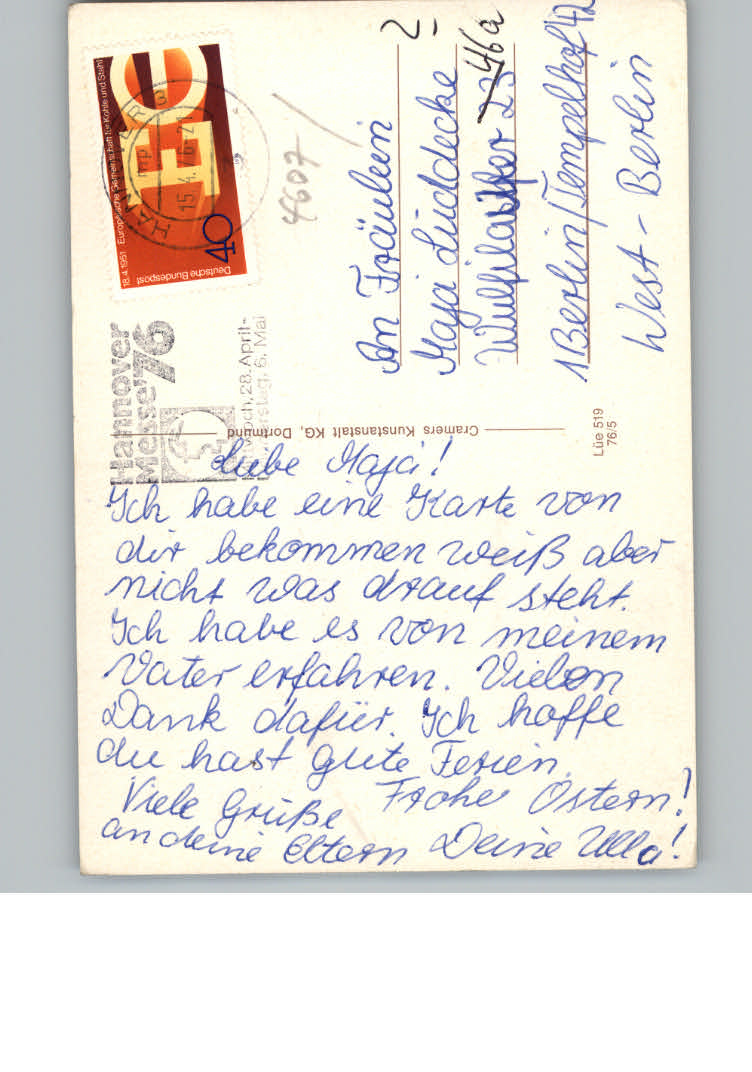 Liebe Maja!
Ich habe eine Karte von
dir bekommen weiß aber
nicht was drauf steht.
Ich habe es von meinem
Vater erfahren. Vielen
Dank dafür. Ich hoffe
du hast gute Ferien.
Viele Grüße Frohe Ostern!
an deine Eltern Deine Ulla!
An Fräulein
Maja Lüddecke
23 46a
1 Berlin/Tempelhof 42
West-Berlin
2-
4607
18.4.1951 Europäische Gemeinschaft für Kohle und Stahl
Deutsche Bundespost
40
15.4.76-21
Hannover
Messe '76
28. April-
6. Mai
Cramers Kunstanstalt KG, Dortmund
Lüe 519
76/5